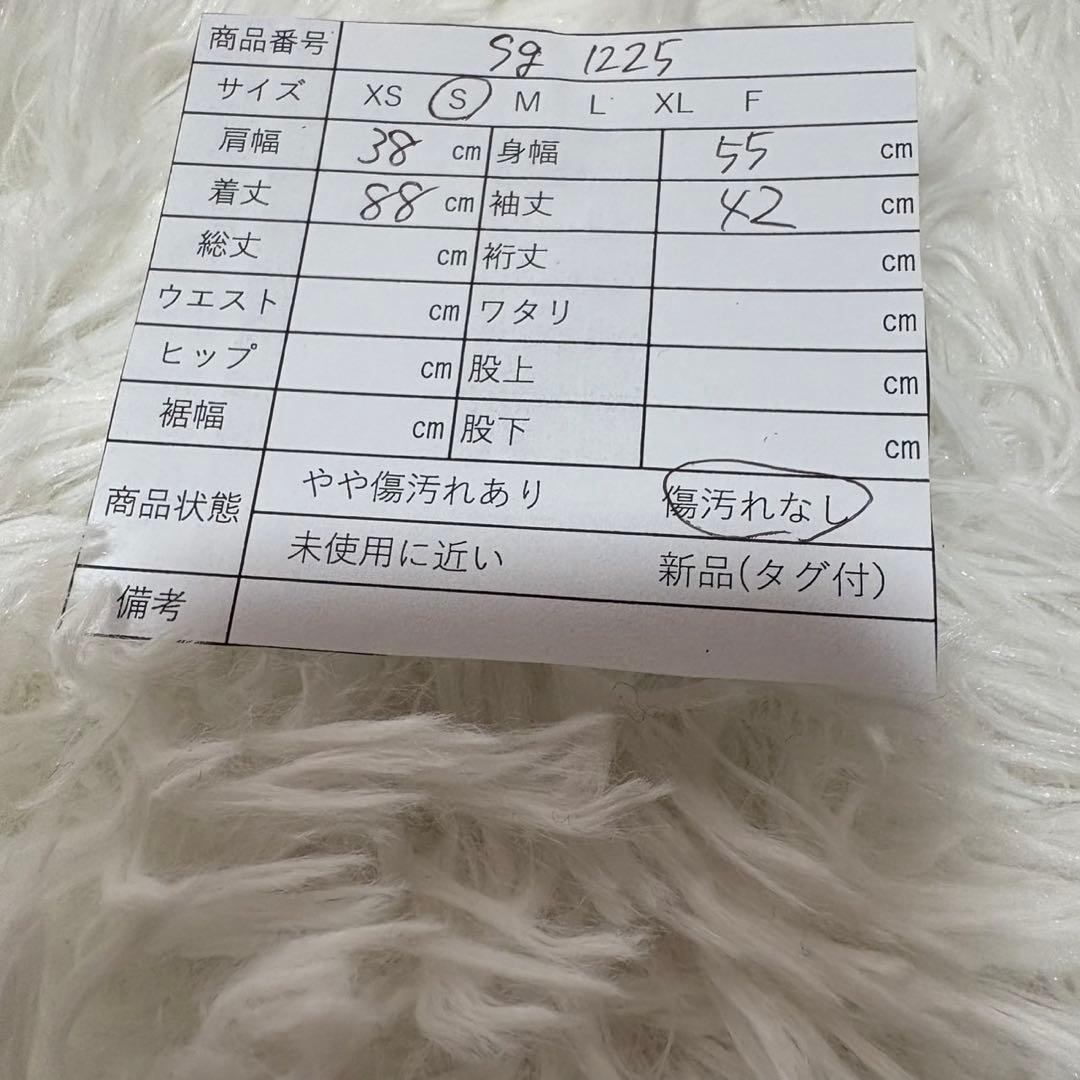 商品番号 Sg 1225
サイズ XS S M L XL F
肩幅 38 cm 身幅 55 cm
着丈 88 cm 袖丈 42 cm
総丈 cm 裄丈 cm
ウエスト cm ワタリ cm
ヒップ cm 股上 cm
裾幅 cm 股下 cm
商品状態 やや傷汚れあり 傷汚れなし
未使用に近い 新品(タグ付)
備考